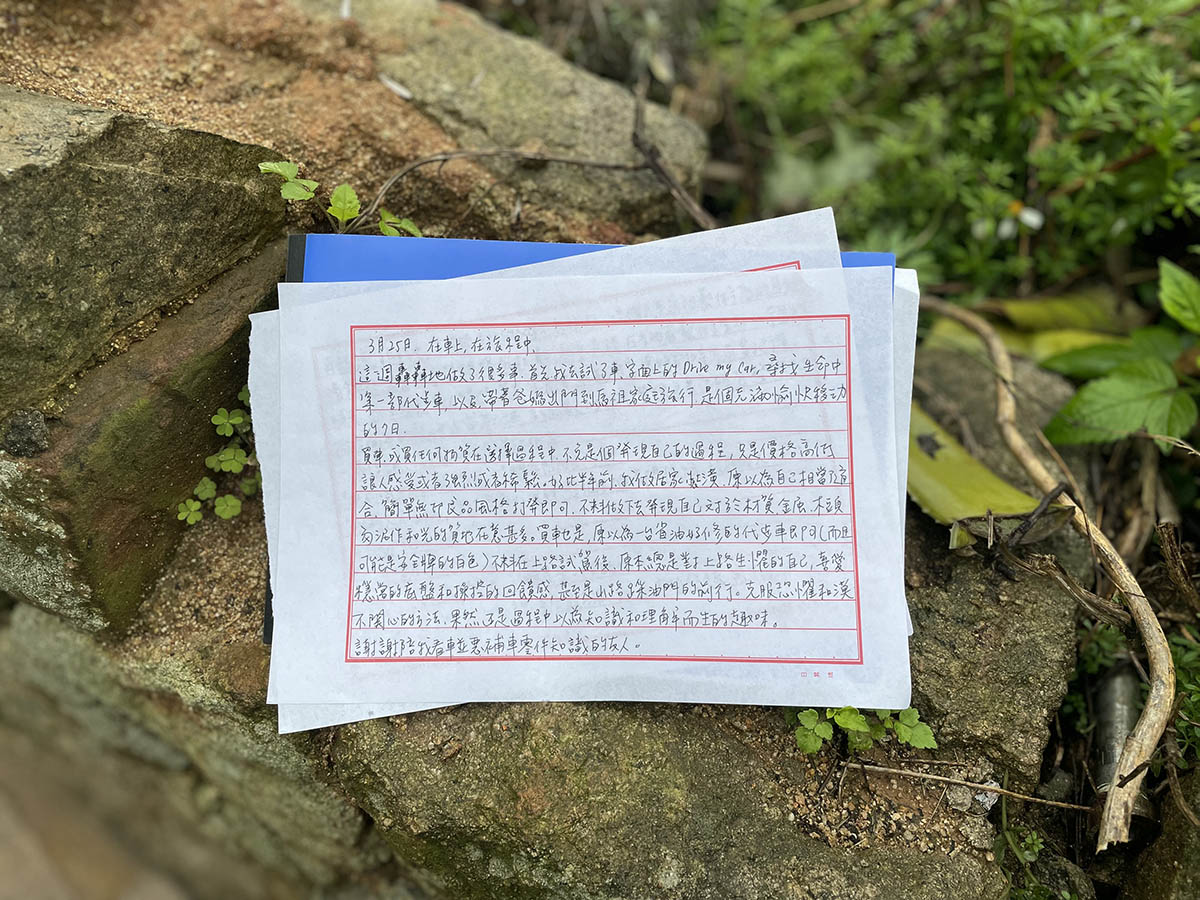 3月25日. 在車上, 在旅程中.
這週轟轟地做了很多事. 首先我去試了車, 字面上的 Drive my Car, 尋找生命中
第一部代步車, 以及, 帶著爸媽出門到 家庭旅行, 是個充滿愉快移動
的7日.
買車, 或買任何物質在選擇過程中不完是個發現自己的過程, 只是價格高低
讓人感覺或者強烈或者稀鬆. 好比半年前, 我在找居家沙發, 原以為自己相當適
合 簡單無印良品風格打發即可. 不料做下去發現自己對於材質金屬、木頭
的 在意甚多. 買車也是, 原以為一台省油好停的代步車即可(而且
可能是安全牌的白色)不料在上路試駕後, 原本總是對上路生懼的自己, 喜愛
穩當的底盤和操控的回饋感, 甚至是山路踩油門的前行。克服恐懼和漠
不關心的方法, 果然還是過程中以為知識和理解而生的趣味。
謝謝陪我看車並惡補車零件知識的友人。